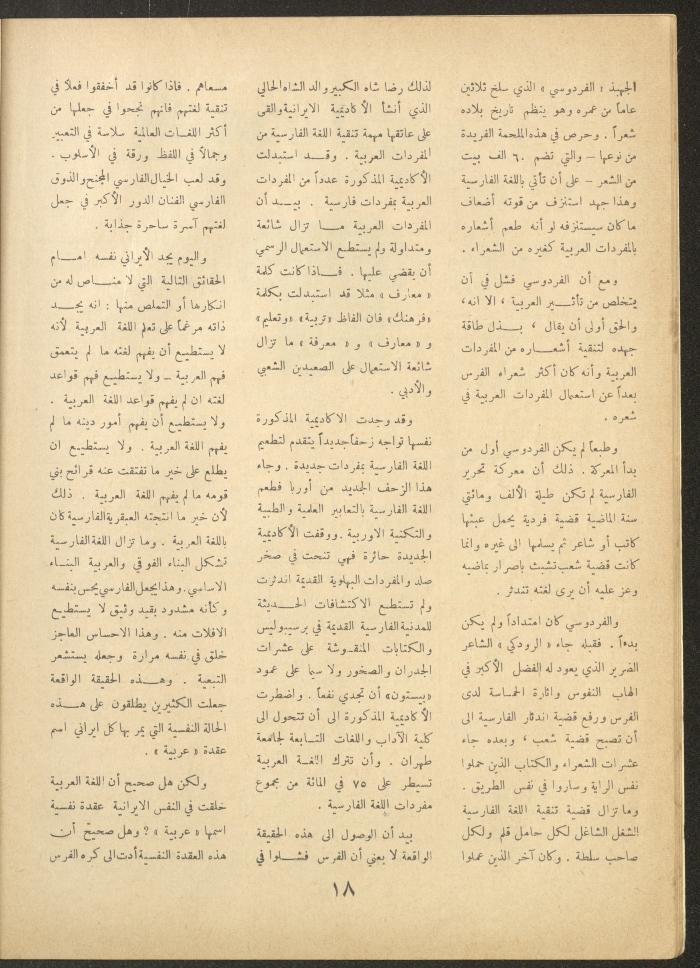 الجهبذ « الفردوسي » الذي سلخ ثلاثين
عاماً من عمره وهو ينظم تاريخ بلاده
شعراً . وحرص في هذه الملحمة الفريدة
من نوعها – والتي تضم ٦٠ الف بيت
من الشعر – على أن تأتي باللغة الفارسية
وهذا جهد استنزف من قوته أضعاف
ما كان سيستنزفه لو أنه طعم أشعاره
بالمفردات العربية كغيره من الشعراء .
ومع أن الفردوسي فشل في أن
يتخلص من تأثير العربية ، الا انه ،
والحق أولى أن يقال ، بذل طاقة
جهده لتنقية أشعاره من المفردات
العربية وأنه كان أكثر شعراء الفرس
بعداً عن استعمال المفردات العربية في
شعره .
وطبعاً لم يكن الفردوسي أول من
بدأ المعركة . ذلك أن معركة تحرير
الفارسية لم تكن طيلة الألف ومائتي
سنة الماضية قضية فردية يحمل عبئها
كاتب أو شاعر ثم يسلمها الى غيره وانما
كانت قضية شعب تشبث باصرار بماضيه
وعز عليه أن يرى لغته تندثر .
والفردوسي كان امتداداً ولم يكن
بدءاً . فقبله جاء « الرودكي » الشاعر
الضرير الذي يعود له الفضل الأكبر في
الهاب النفوس واثارة الحماسة لدى
الفرس ورفع قضية اندثار الفارسية الى
أن تصبح قضية شعب ، وبعده جاء
عشرات الشعراء والكتاب الذين حملوا
نفس الراية وساروا في نفس الطريق .
وما تزال قضية تنقية اللغة الفارسية
الشغل الشاغل لكل حامل قلم ولكل
صاحب سلطة . وكان آخر الذين عملوا
لذلك رضا شاه الكبير والد الشاه الحالي
الذي أنشأ الأكاديمية الايرانية وألقى
على عاتقها مهمة تنقية اللغة الفارسية من
المفردات العربية . وقد استبدلت
الأكاديمية المذكورة عدداً من المفردات
العربية بمفردات فارسية . بيد أن
المفردات العربية ما تزال شائعة
ومتداولة ولم يستطع الاستعمال الرسمي
أن يقضي عليها . فاذا كانت كلمة
« معارف » مثلا قد استبدلت بكلمة
«فرهنك» فان الفاظ «تربية» «وتعليم»
و « معارف » و « معرفة » ما تزال
شائعة الاستعمال على الصعيدين الشعبي
والأدبي .
وقد وجدت الاكاديمية المذكورة
نفسها تواجه زحفاً جديداً يتقدم لتطعيم
اللغة الفارسية بمفردات جديدة . وجاء
هذا الزحف الجديد من أوربا فطعم
اللغة الفارسية بالتعابير العلمية والطبية
والتكنية الاوربية . ووقفت الأكاديمية
الجديدة حائرة فهي تنحت في صخر
صلد والمفردات البهلوية القديمة اندثرت
ولم تستطع الاكتشافات الحديثة
للمدنية الفارسية القديمة في برسيبوليس
والكتابات المنقوشة على عشرات
الجدران والصخور ولا سيما على عمود
«بيستون» أن تجدي نفعاً . واضطرت
الأكاديمية المذكورة الى أن تتحول الى
كلية الآداب واللغات التابعة لجامعة
طهران . وأن تترك اللغة العربية
تسيطر على ٧٥ في المائة من مجموع
مفردات اللغة الفارسية .
بيد أن الوصول الى هذه الحقيقة
الواقعة لا يعني أن الفرس فشلوا في
مسعاهم . فاذا كانوا قد أخفقوا فعلا في
تنقية لغتهم فانهم نجحوا في جعلها من
أكثر اللغات العالمية سلاسة في التعبير
وجمالاً في اللفظ ورقة في الأسلوب .
وقد لعب الخيال الفارسي المجنح والذوق
الفارسي الفنان الدور الأكبر في جعل
لغتهم آسرة ساحرة جذابة .
واليوم يجد الأيراني نفسه امام
الحقائق التالية التي لا مناص له من
انكارها أو التملص منها : انه يجد
ذاته مرغماً على تعلم اللغة العربية لأنه
لا يستطيع أن يفهم لغته ما لم يتعمق
فهم العربية – ولا يستطيع فهم قواعد
لغته ان لم يفهم قواعد اللغة العربية .
ولا يستطيع أن يفهم أمور دينه ما لم
يفهم اللغة العربية . ولا يستطيع ان
يطلع على خير ما تفتقت عنه قرائح بني
قومه ما لم يفهم اللغة العربية . ذلك
لأن خير ما انتجته العبقرية الفارسية كان
باللغة العربية . وما تزال اللغة الفارسية
تشكل البناء الفوقي والعربية البناء
الاساسي . وهذا يجعل الفارسي يحس بنفسه
وكأنه مشدود بقيد وثيق لا يستطيع
الافلات منه . وهذا الاحساس العاجز
خلق في نفسه مرارة وجعله يستشعر
التبعية . وهذه الحقيقة الواقعة
جعلت الكثيرين يطلقون على هذه
الحالة النفسية التي يمر بها كل ايراني اسم
عقدة « عربية » .
ولكن هل صحيح أن اللغة العربية
خلقت في النفس الايرانية عقدة نفسية
اسمها « عربية » ؟ وهل صحيح أن
هذه العقدة النفسية أدت الى كره الفرس
١٨